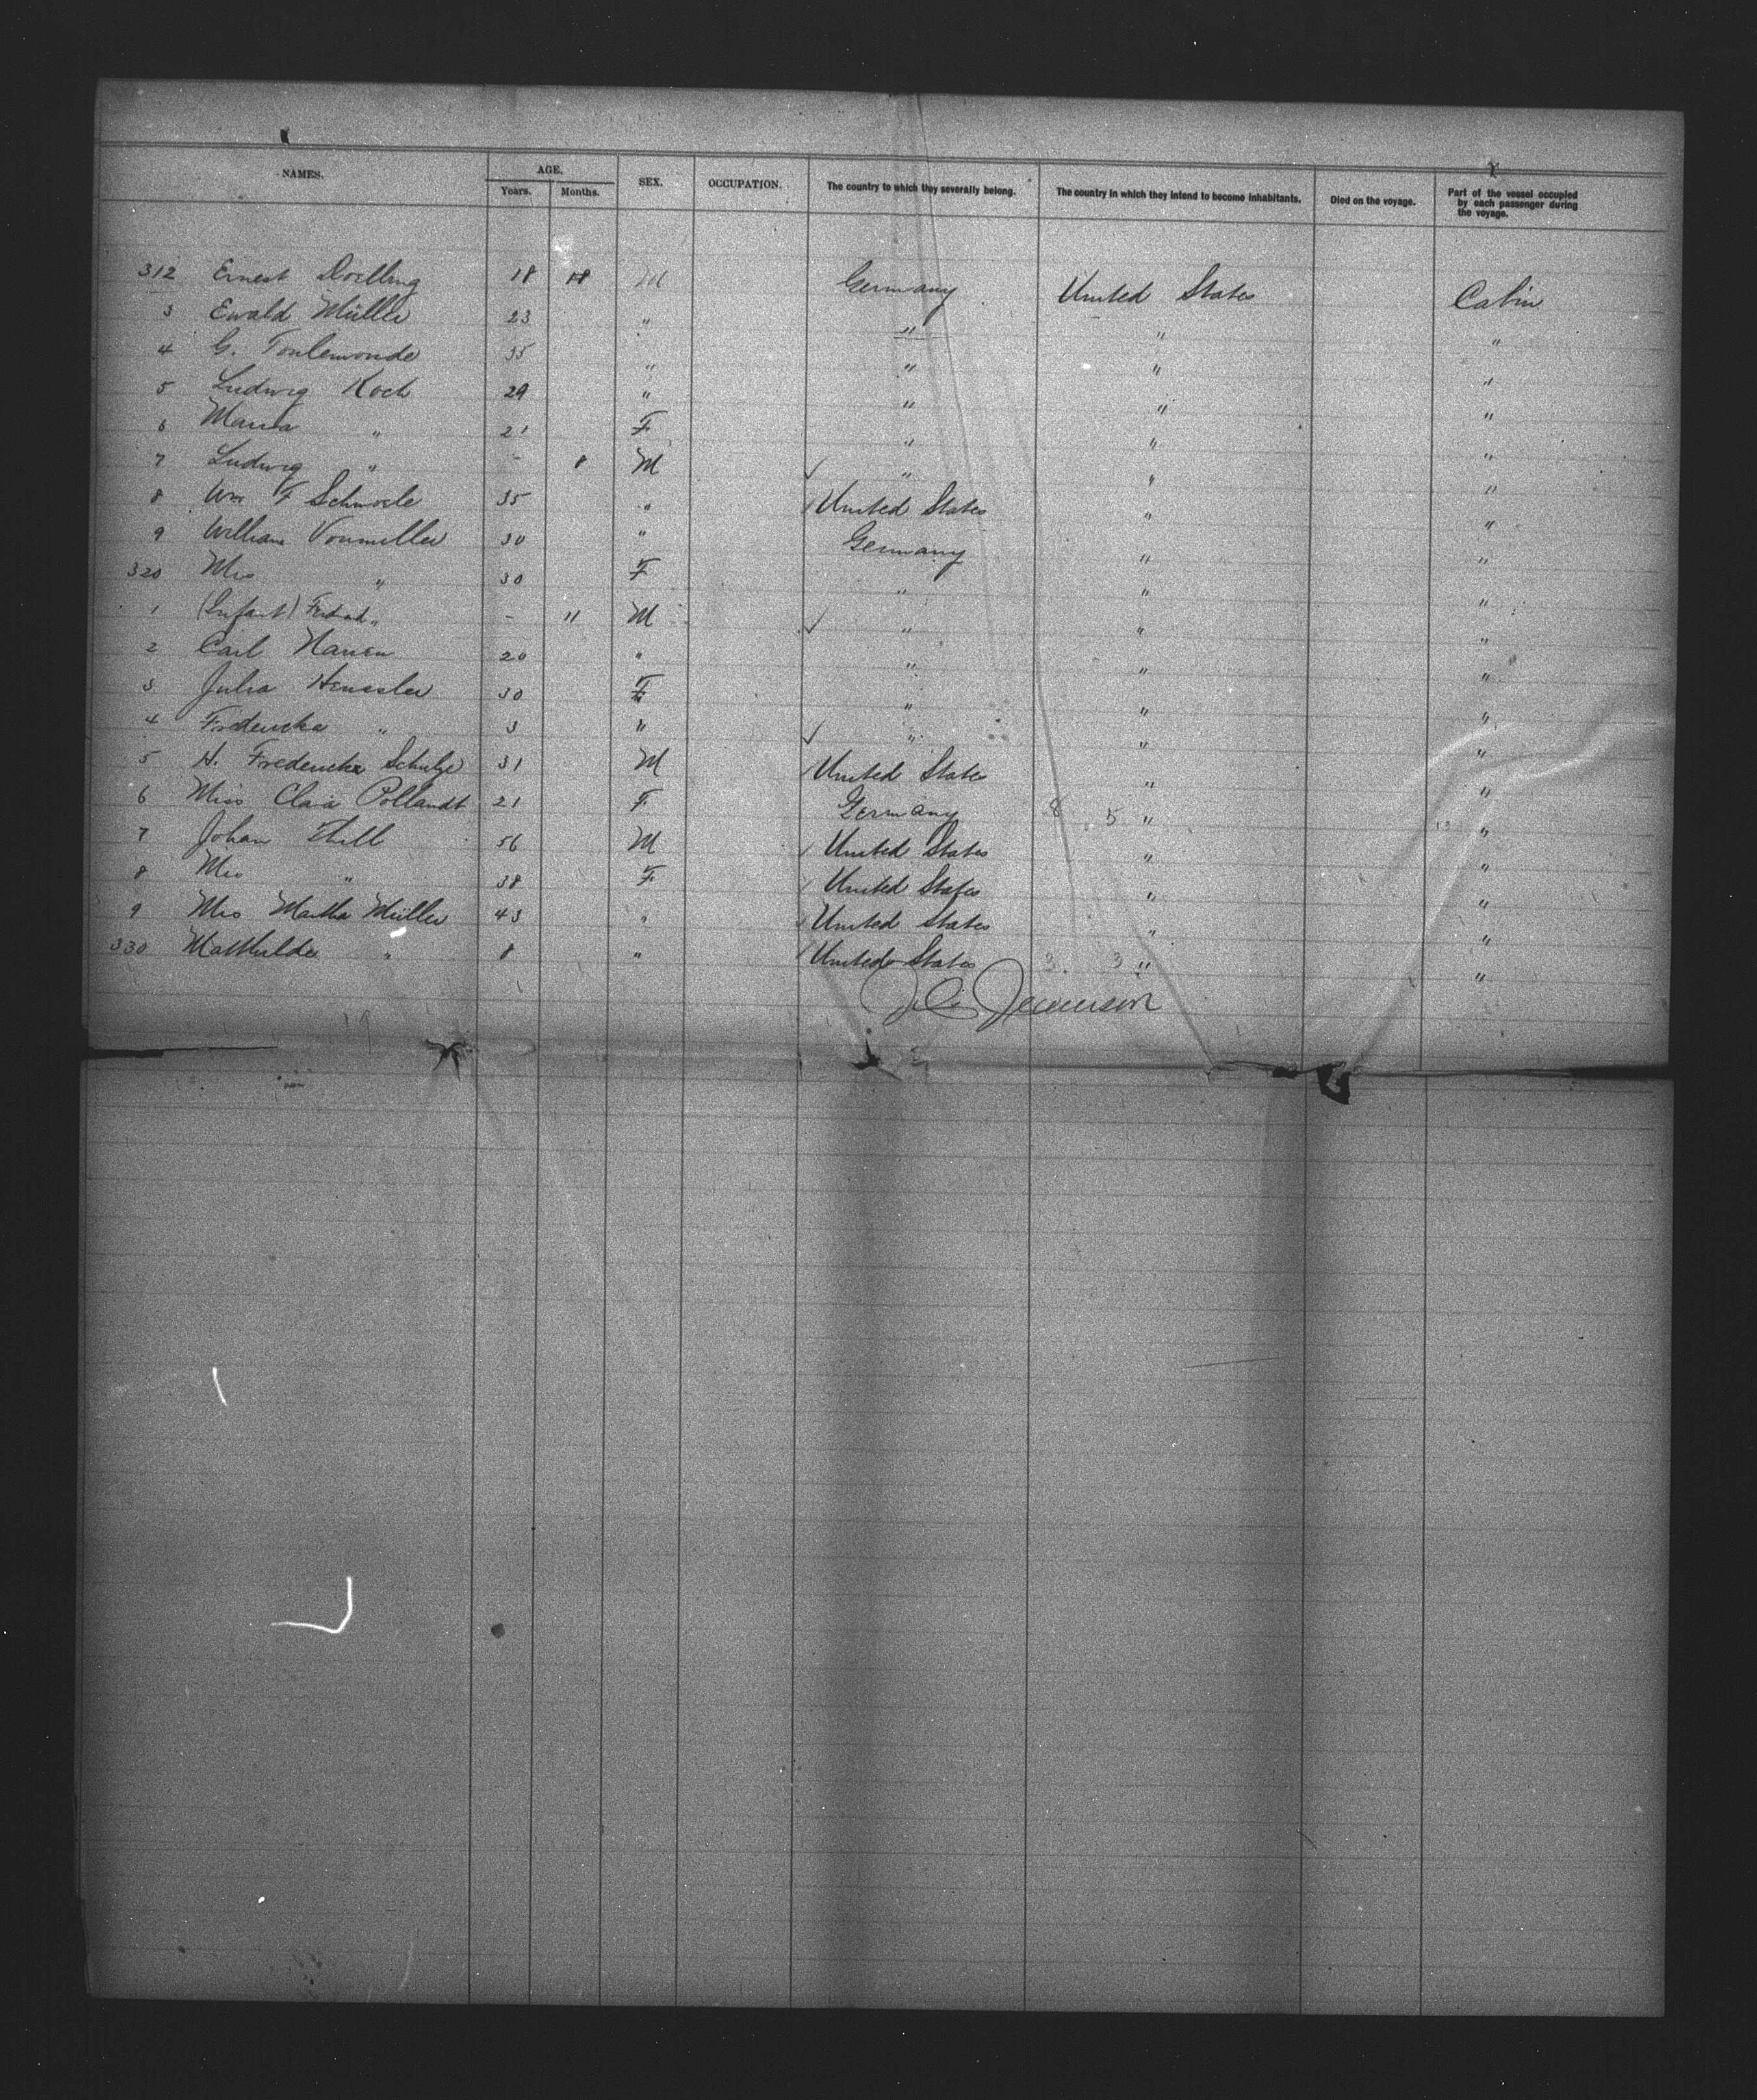 NAMES. AGE. SEX. OCCUPATION. The country to which they severally belong. The country in which they intend to become inhabitants. Died on the voyage. Part of the vessel occupied by each passenger during the voyage.
Years. Months.
312 Ernest Doelling 18 M Germany United States Cabin
3 Ewald Müller 23 " " " "
4 G. Toulemonde 35 " " " "
5 Ludwig Koch 29 " " " "
6 Maria " 21 F " " "
7 Ludwig " - 8 M " " "
8 Wm F Schmoele 35 " United States " "
9 William Vonmiller 30 " Germany " "
320 Mrs " 30 F " " "
1 (Infant) " - 11 M " " "
2 Carl Hansen 20 " " " "
3 Julia Heussler 30 F " " "
4 Fredericka " 3 " " " "
5 H. Fredericka Schulze 31 M United States " "
6 Miss Clara Pollandt 21 F Germany 8 5 " "
7 Johan Thill 56 M United States " "
8 Mrs " 38 F United States " "
9 Mrs Martha Müller 43 " United States " "
330 Mathilde " 8 " United States 3. 3 " "
19